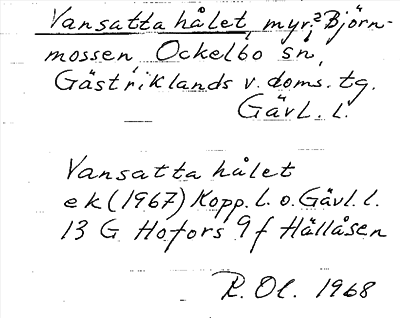 Vansatta hålet, myr i Björn-
mossen, Ockelbo sn,
Gästriklands v. doms. tg.
Gävl. l.
Vansatta hålet
ek (1967) Kopp. l. o. Gävl. l.
13 G Hofors 9 f Hällåsen
R. Ol. 1968